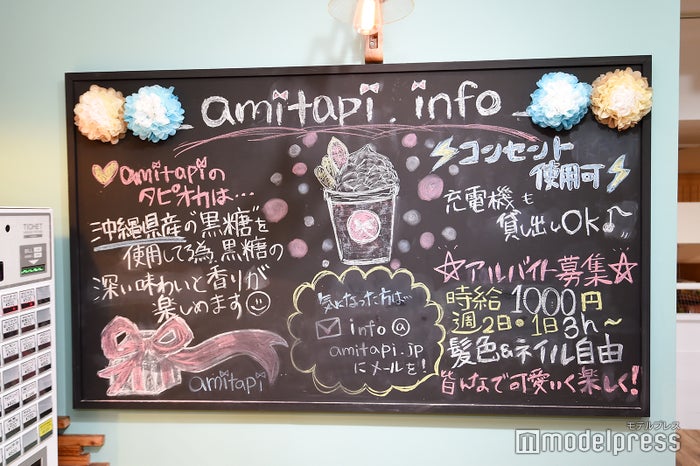 amitapi. info
amitapiの
タピオカは…
沖縄県産の"黒糖"を
使用してる為、黒糖の
深い味わいと香りが
楽しめます
amitapi
気になった方は…
info@
amitapi.jp
にメールを!
コンセント
使用可
充電機も
貸し出しOK♪
☆アルバイト募集☆
時給1000円
週2日・1日3h〜
髪色&ネイル自由
皆んなで可愛いく楽しく!
TICKET
モデルプレス
modelpress